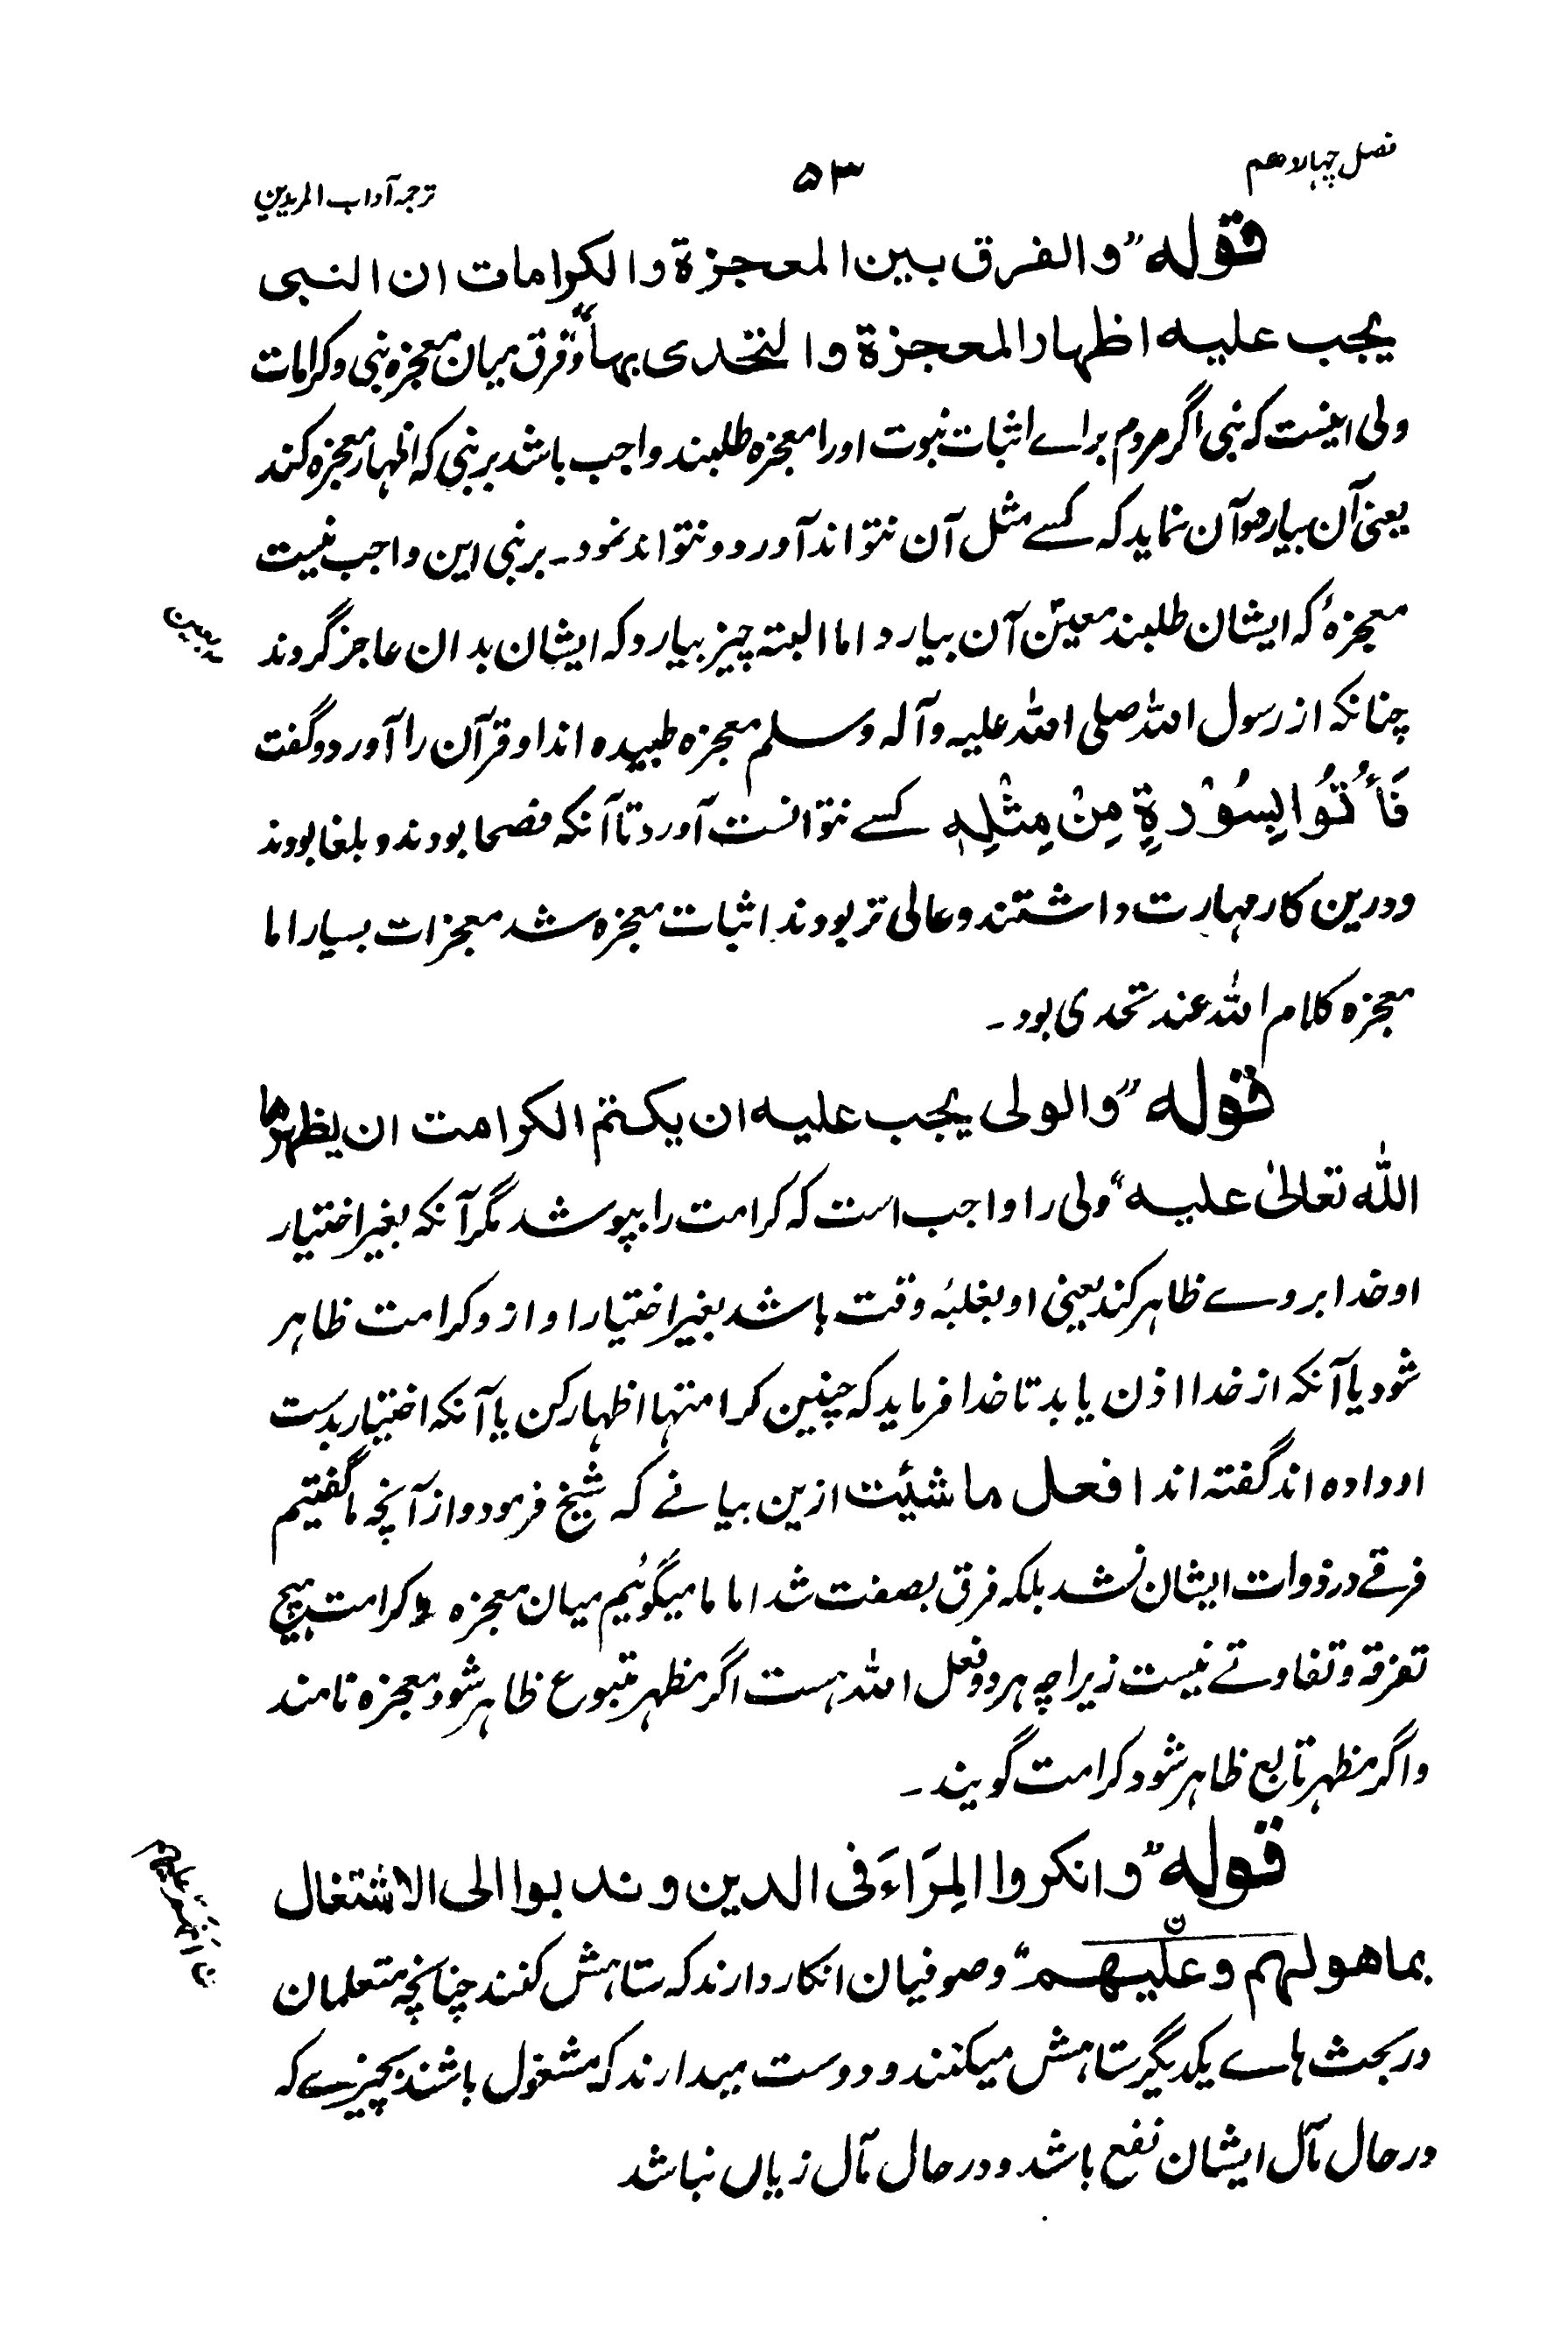 فصل چهاردهم
۵۳
ترجمہ آداب المریدین
قوله "والفرق بین المعجزة والکرامات ان النبی
یجب علیه اظهار المعجزة والتحدی بها" و فرق میان معجزہ نبی و کرامات
ولی اینست که نبی اگر مردم براے اثبات نبوت اورا معجزه طلبند واجب باشد بر نبی که اظهار معجزه کند
یعنی آن بیارد و آن نماید که کسے مثل آن نتواند آورد و نتواند نمود۔ بر نبی این واجب نیست
معجزهٔ که ایشان طلبند معیّن آن بیارد اما البته چیز بیارد که ایشان بدان عاجز گردند
بعین
چنانکه از رسول الله صلی الله علیه وآله وسلم معجزه طلبیده اند او قرآن را آورد و گفت
فَأْتُوْا بِسُوْرَةٍ مِنْ مِثْلِهٖ کسے نتوانست آورد تا آنکه فصحا بودند و بلغا بودند
و درین کار مهارت داشتند و عالی تر بودند اثبات معجزه شد معجزات بسیار اما
معجزه کلام الله عند تحدی بود۔
قوله "والولی یجب علیه ان یکتم الکرامت ان یظهرها
الله تعالیٰ علیه" ولی را واجب است که کرامت را بپوشد مگر آنکه بغیر اختیار
او خدا بروے ظاهر کند یعنی او بغلبۂ وقت باشد بغیر اختیار او ازو کرامت ظاهر
شود یا آنکه از خدا اذن یابد تا خدا فرماید که چنین کرامتها اظهار کن یا آنکه اختیار بدست
او داده اند گفته اند افعل ما شئت ازین بیانے که شیخ فرمود و از آنچه ما گفتیم
فرقے در ذوات ایشان نشد بلکه فرق بصفت شد اما ما میگوئیم میان معجزه و کرامت هیچ
تفرقه و تفاوتے نیست زیراچه هر دو فعل الله هست اگر مظهر متبوع ظاهر شود معجزه نامند
و اگر مظهر تابع ظاهر شود کرامت گویند۔
قوله "وانکروا المِرَاءَ فی الدین وندبوا الی الاشتغال
بما هو لهم وعلیهم" و صوفیان انکار دارند که ستاهش کنند چنانچه متعلمان
در بحث هاے یکدیگر ستاهش میکنند و دوست میدارند که مشغول باشند بچیزے که
در حال مآل ایشان نفع باشد و در حال مآل زیاں نباشد